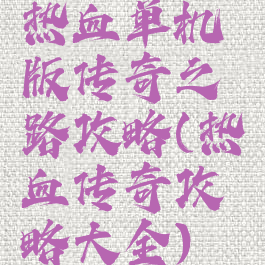 热血单机
版传奇之
路攻略(热
血传奇攻
略大全)